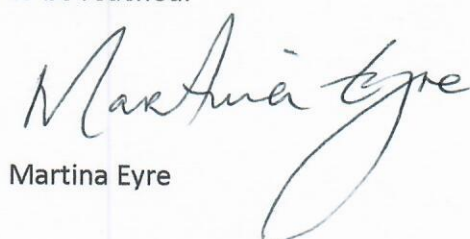 Martina Eyre
Martina Eyre